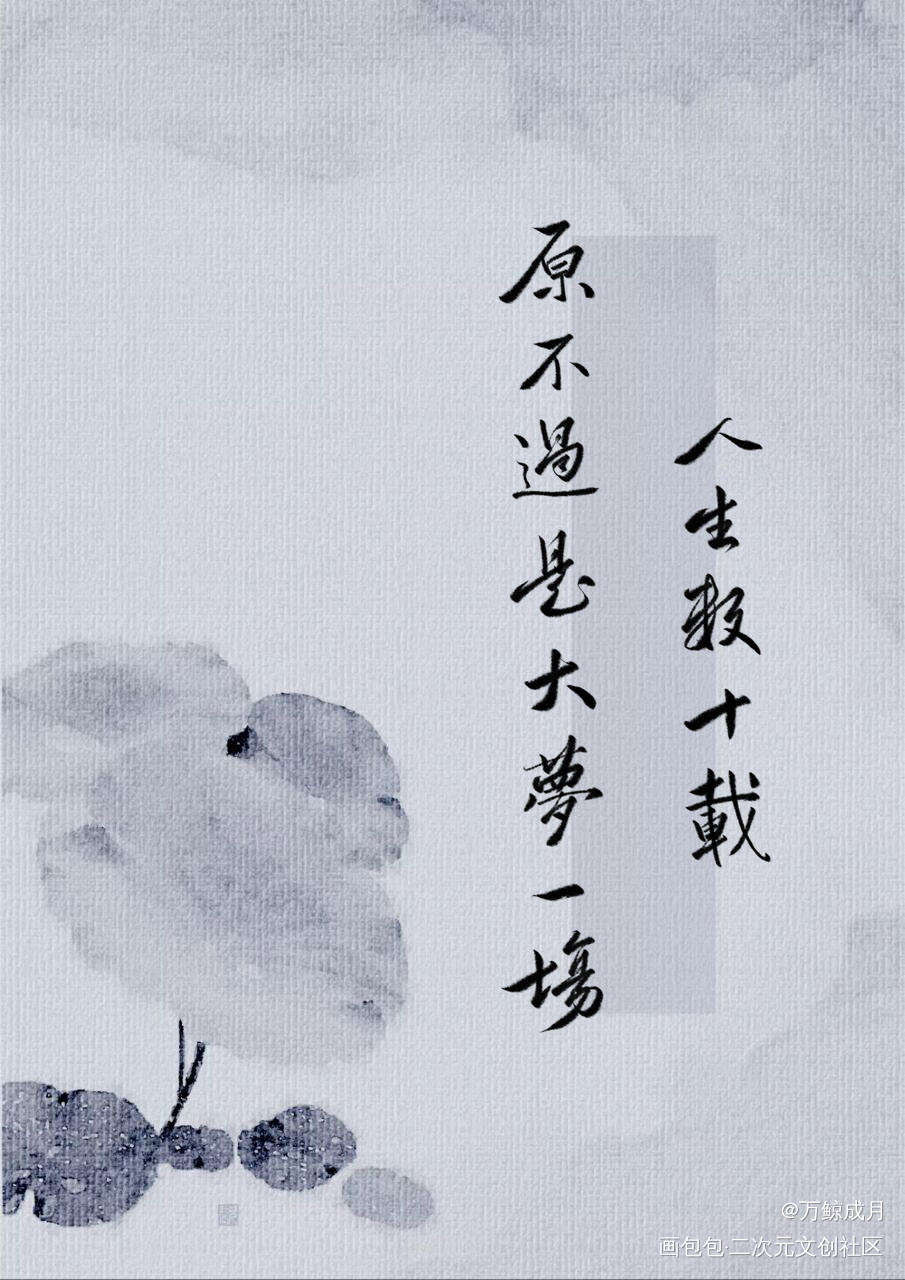 人生数十載
原不過是大夢一場
@万鲸成月
画包包·二次元文创社区